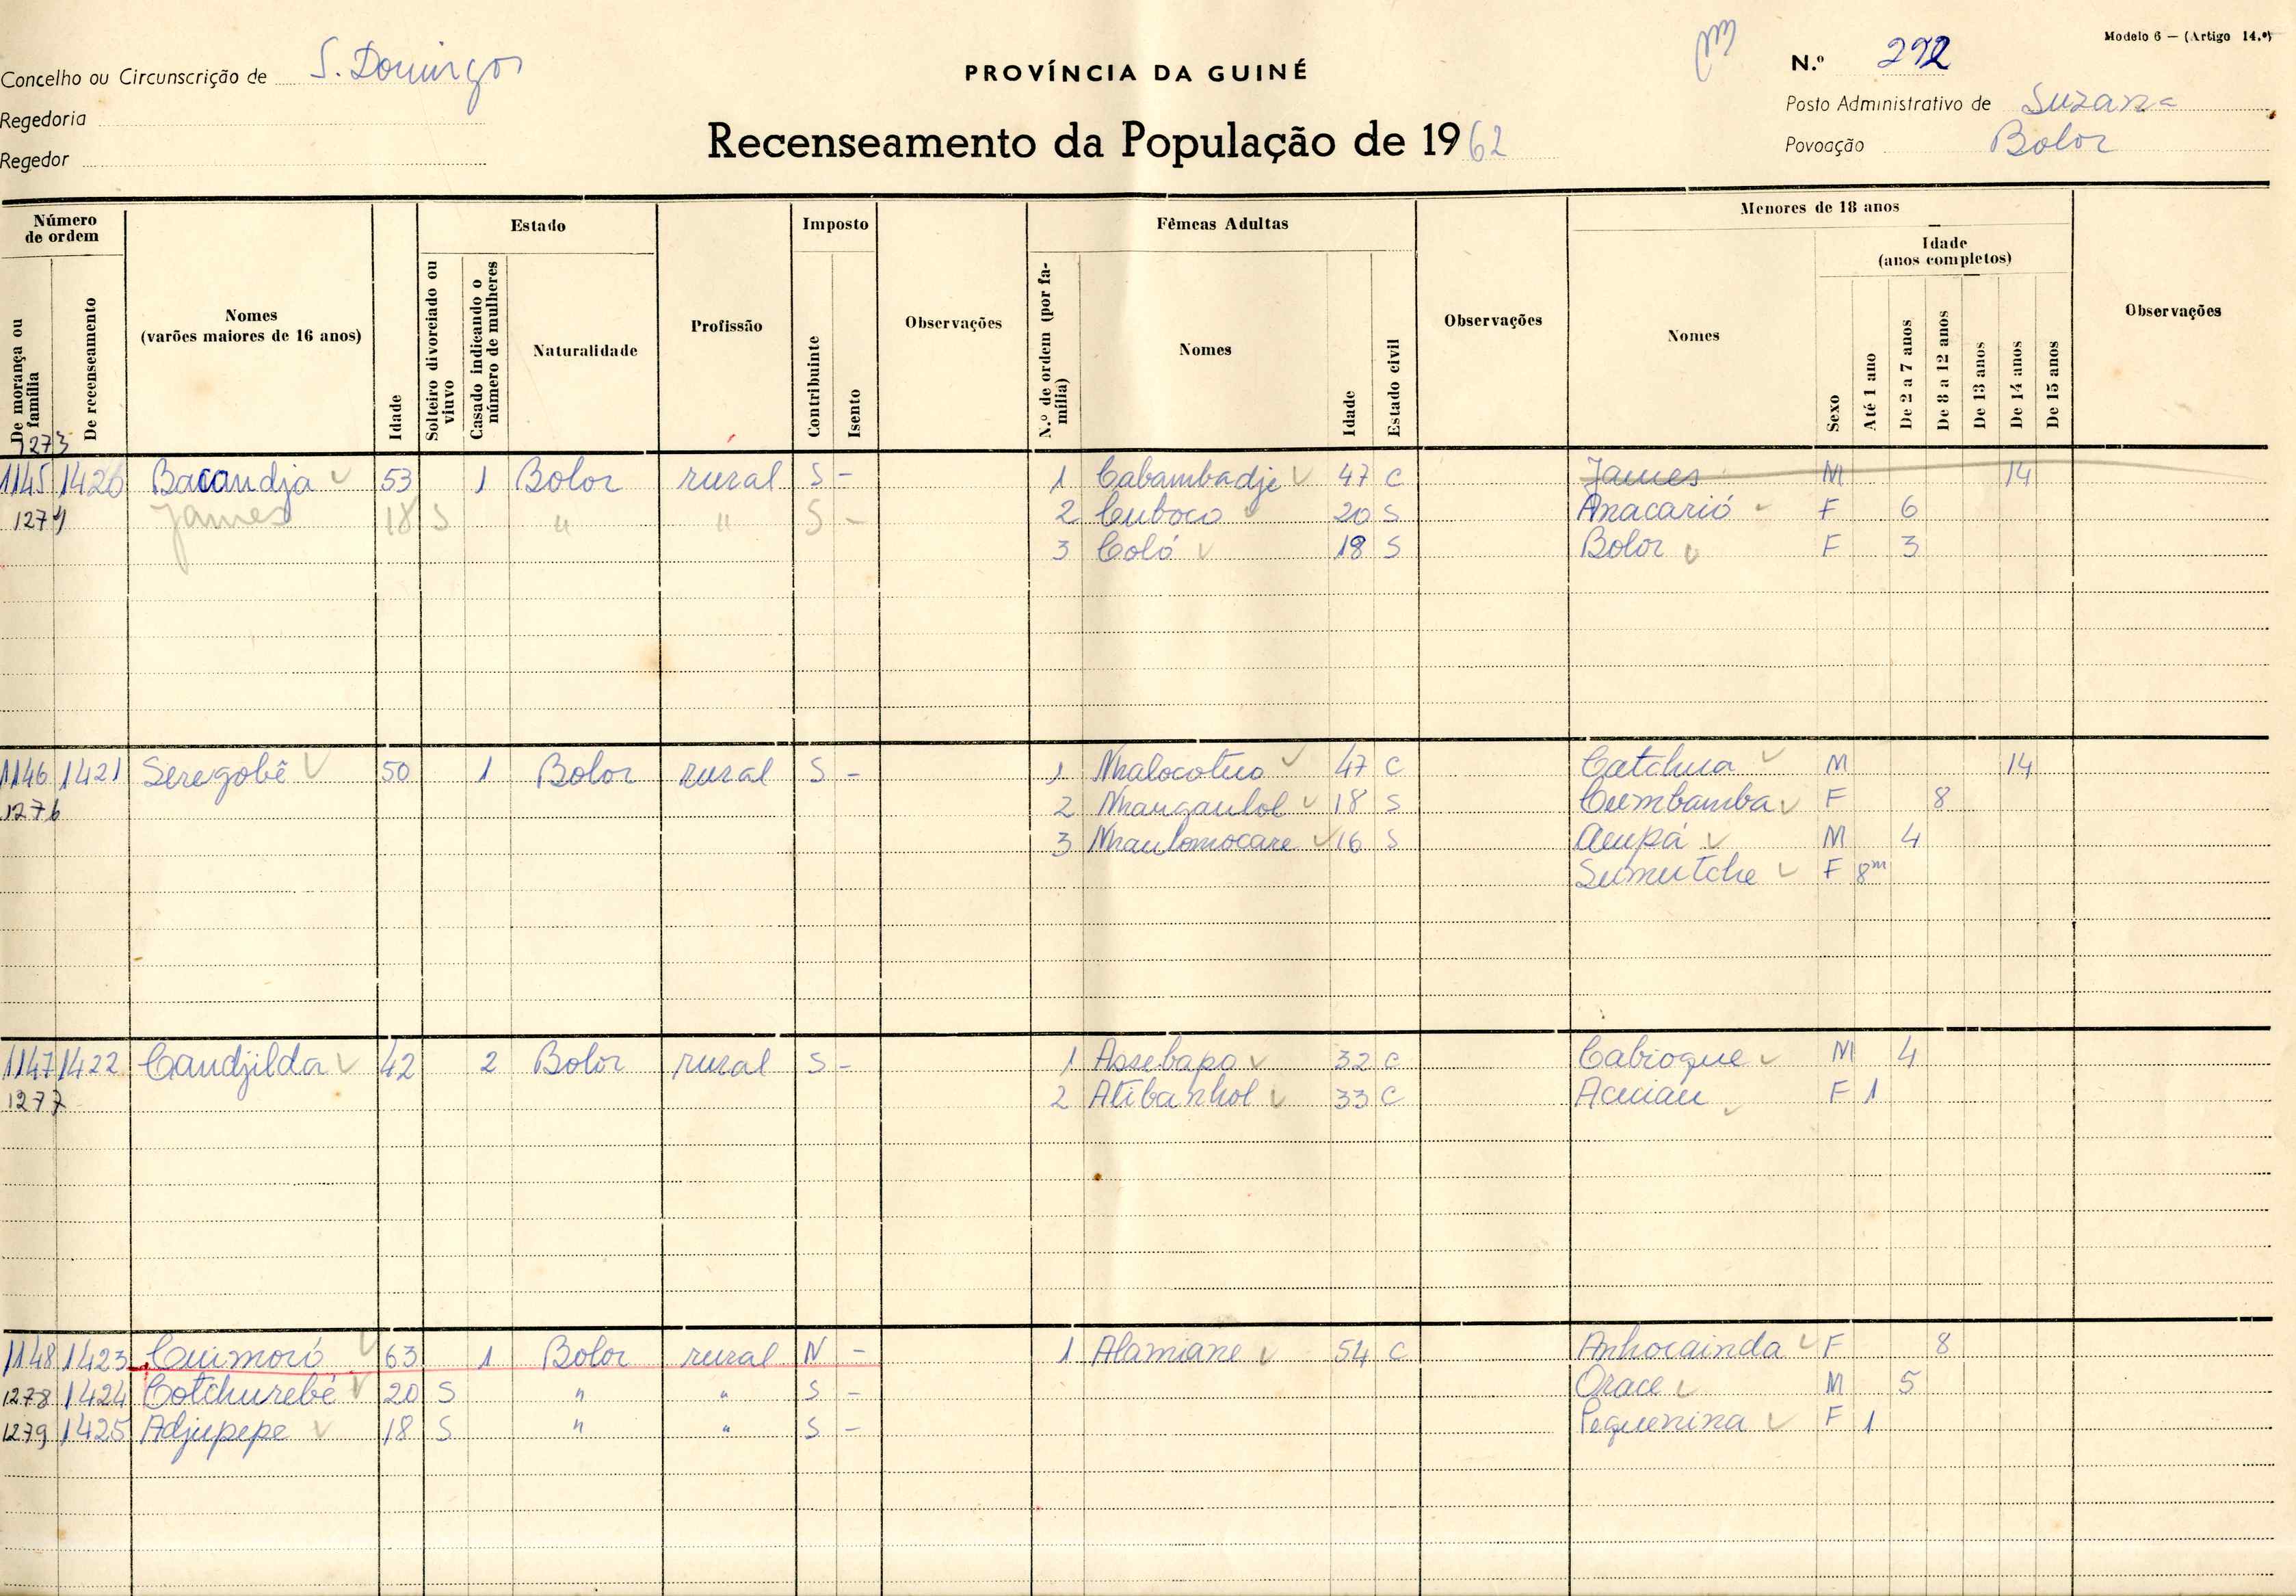 Modelo 6 — (Artigo 14.º)
Concelho ou Circunscrição de S. Domingos
PROVÍNCIA DA GUINÉ
N.º 292
Regedoria
Posto Administrativo de Suzana
Regedor
Recenseamento da População de 1962
Povoação Bolor
Número de ordem
Estado
Imposto
Fêmeas Adultas
Menores de 18 anos
Idade (anos completos)
De morança ou família
De recenseamento
Nomes (varões maiores de 16 anos)
Idade
Solteiro divorciado ou viuvo
Casado indicando o número de mulheres
Naturalidade
Profissão
Contribuinte
Isento
Observações
N.º de ordem (por família)
Nomes
Idade
Estado civil
Observações
Nomes
Sexo
Até 1 ano
De 2 a 7 anos
De 8 a 12 anos
De 13 anos
De 14 anos
De 15 anos
Observações
1273
1145 1420 Bacandja 53 1 Bolor rural S - 1 Cabambadje 47 C James M 14
1274 James 18 S " " S - 2 Cuboco 20 S Anacarió F 6
3 Coló 18 S Bolor F 3
1146 1421 Seregobê 50 1 Bolor rural S - 1 Nhalocotuo 47 C Catchua M 14
1276 2 Nhangaulol 18 S Cumbamba F 8
3 Nhaulomocare 16 S Acupá M 4
Sumutche F 8m
1147 1422 Candjilda 42 2 Bolor rural S - 1 Assebapo 32 C Cabioque M 4
1277 2 Atibanhol 33 C Acuiau F 1
1148 1423 Cuimoró 63 1 Bolor rural N - 1 Alamiane 54 C Anhocainda F 8
1278 1424 Cotchurebé 20 S " " S - Orace M 5
1279 1425 Adjupepe 18 S " " S - Pequenina F 1